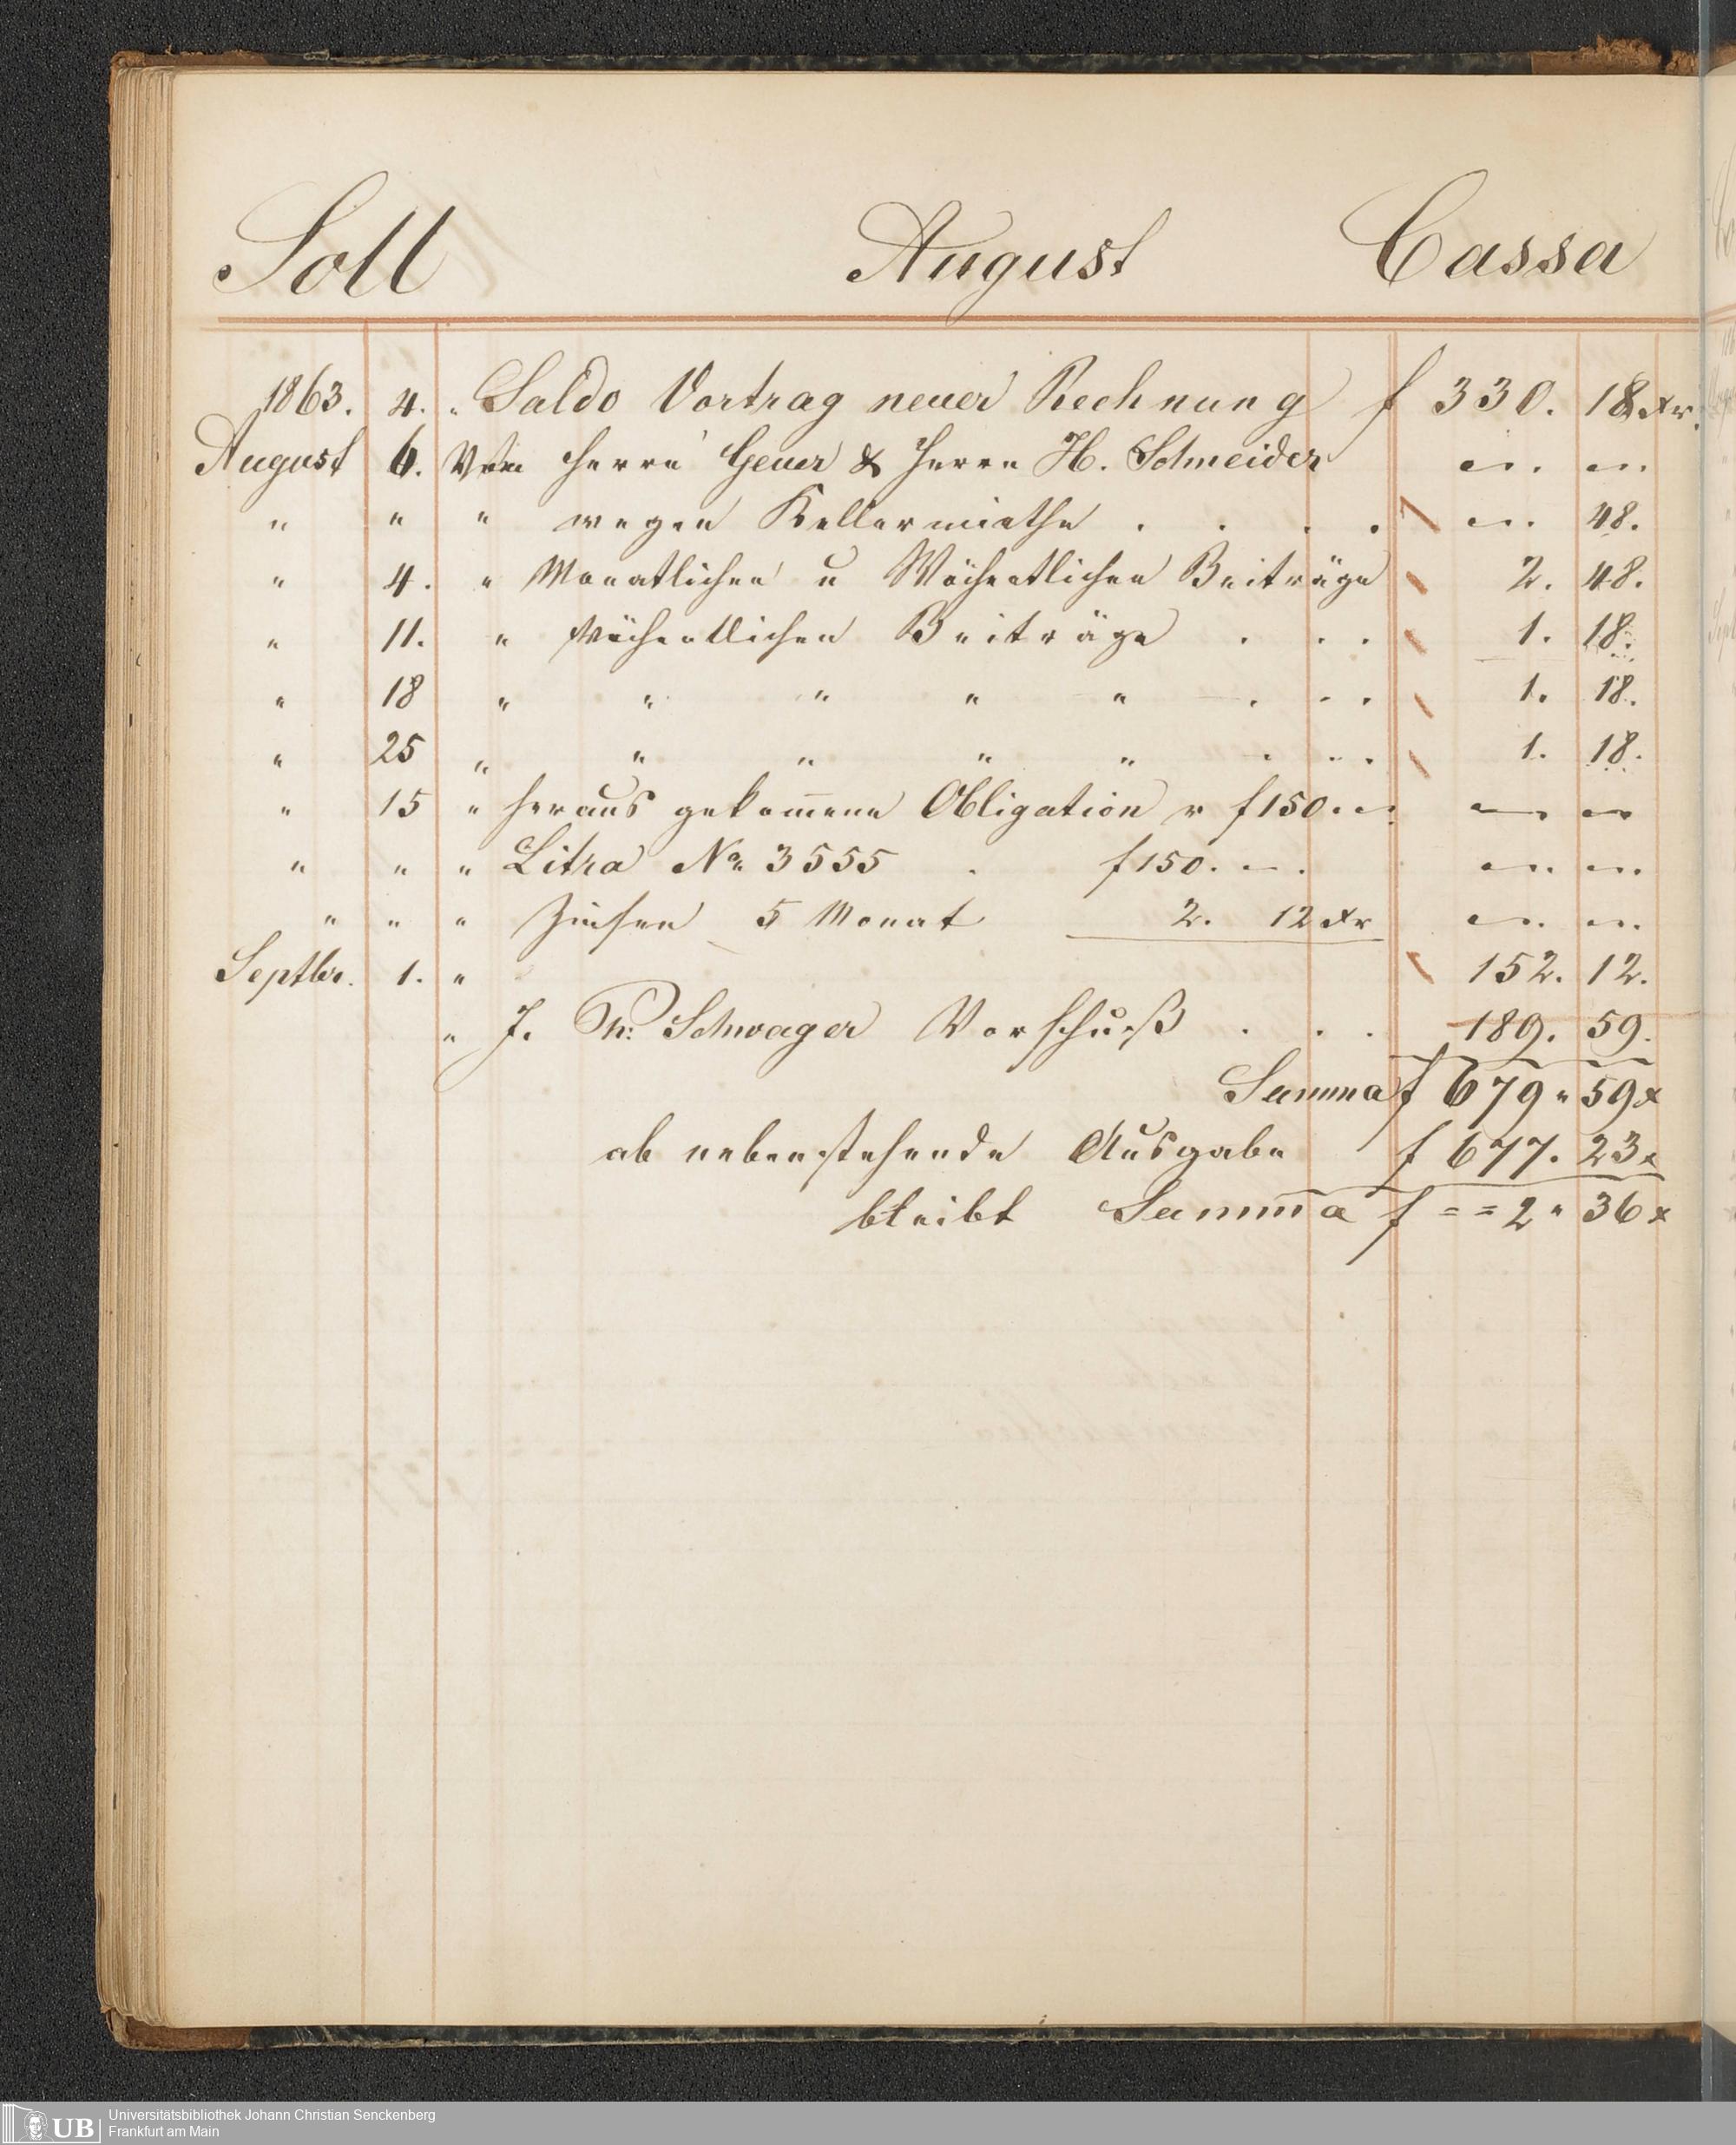 Soll August Cassa
1863. 4. " Saldo Vortrag neuer Rechnung f 330. 18 xr.
August 6. Von Herrn Geuer & Herrn H. Schneider —. —.
" " " wegen Kellermiethe . . . . —. 48.
" 4. " Monatlichen u Wöchentlichen Beiträge 2. 48.
" 11. " Wöchentlichen Beiträge . . . 1. 18.
" 18 " " " " " . . . 1. 18.
" 25 " " " " " . . . 1. 18.
" 15 " heraus gekom̅ene Obligation r f 150. —. —. —
" " " Litra No 3555 . f 150. —. —. —.
" " " Zinsen 5 Monat 2. 12 xr —. —.
Septbr. 1. " 152. 12.
" J. Ph: Schwager Vorschuß . . . 189. 59.
Summa f 679 " 59 x
ab nebenstehende Ausgabe f 677. 23 x
bleibt Summa f = = 2 " 36 x
UB Universitätsbibliothek Johann Christian Senckenberg
Frankfurt am Main